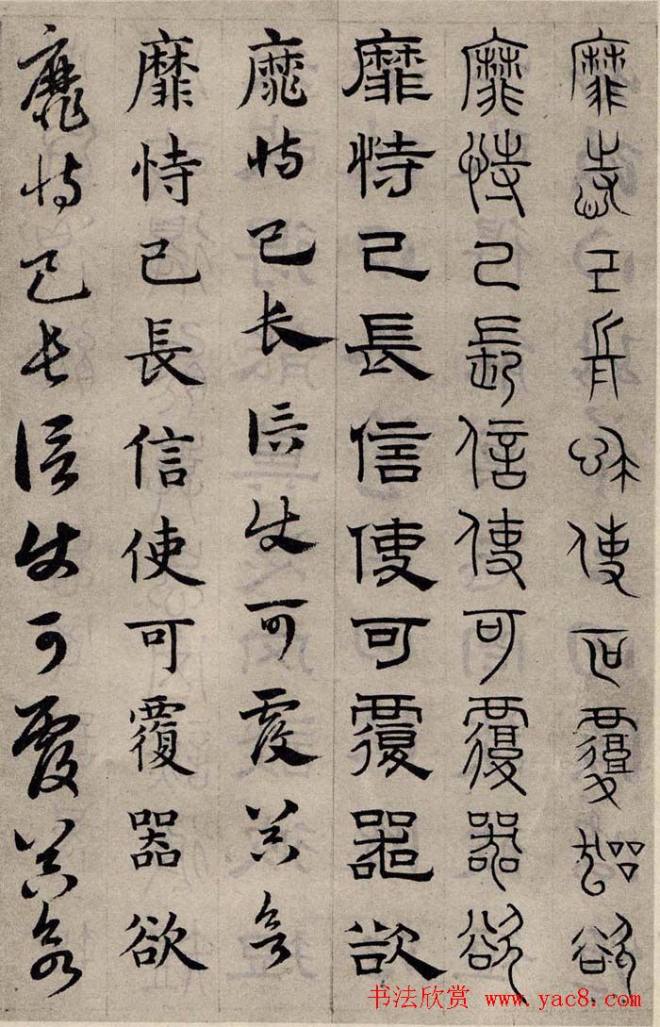 靡恃己長信使可覆器欲
靡恃己長信使可覆器欲
靡恃己長信使可覆器欲
靡恃己長信使可覆器欲
靡恃己長信使可覆器欲
靡恃己長信使可覆器欲
书法欣赏 www.yac8.com